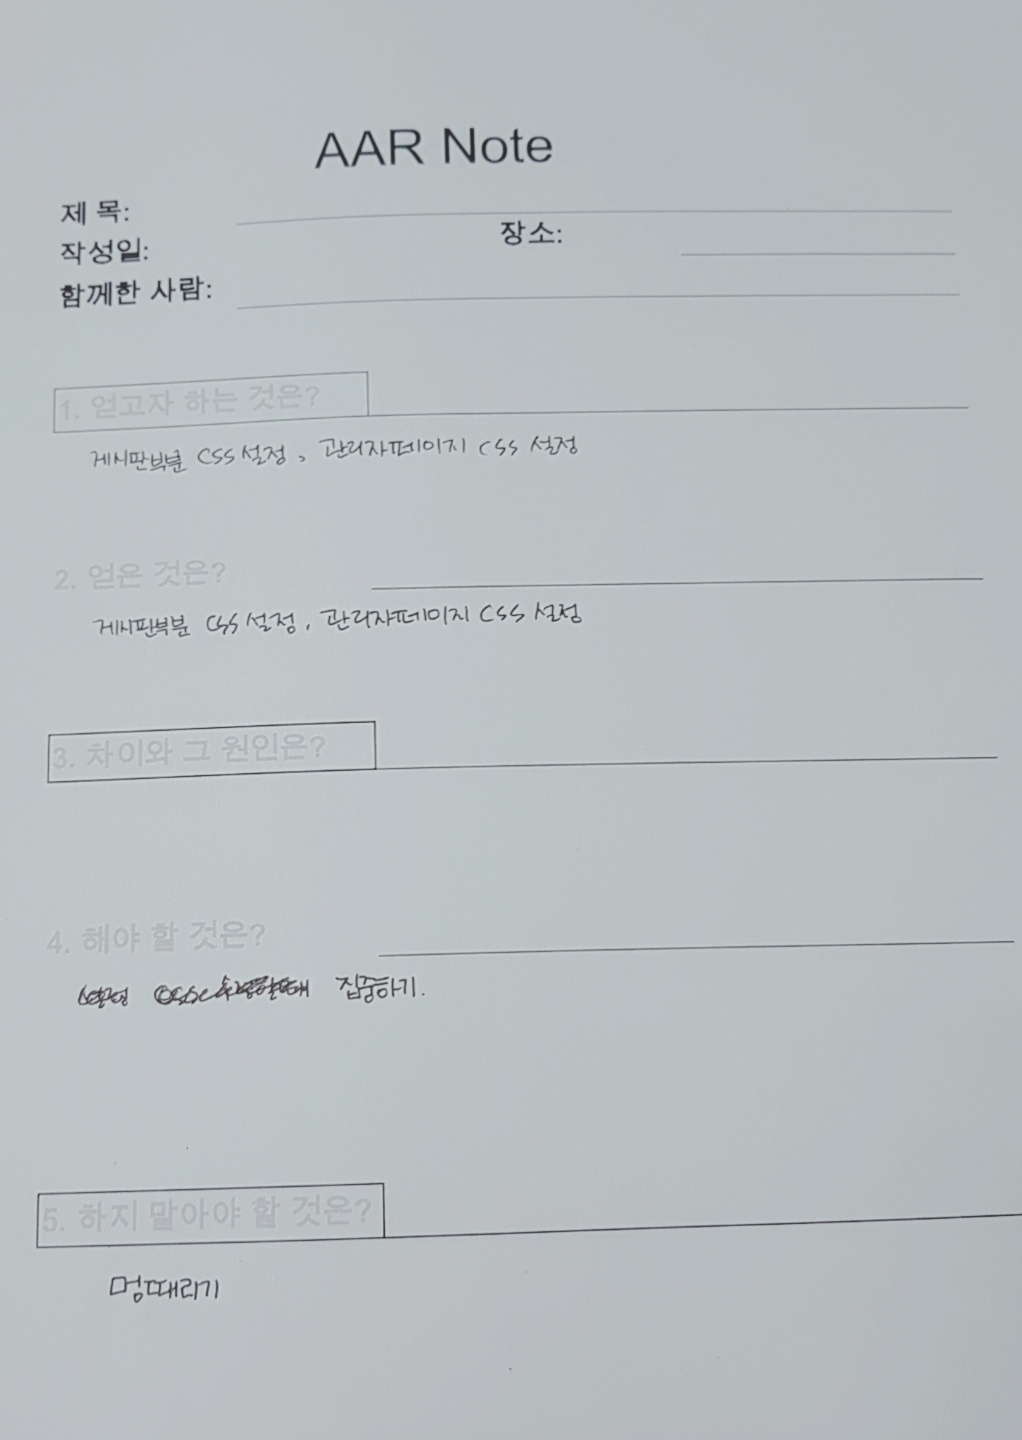 AAR Note
제 목:
작성일:
장소:
함께한 사람:
1. 얻고자 하는 것은?
게시판부분 CSS 설정, 관리자페이지 CSS 설정
2. 얻은 것은?
게시판부분 CSS 설정, 관리자페이지 CSS 설정
3. 차이와 그 원인은?
4. 해야 할 것은?
집중하기.
5. 하지 말아야 할 것은?
멍때리기